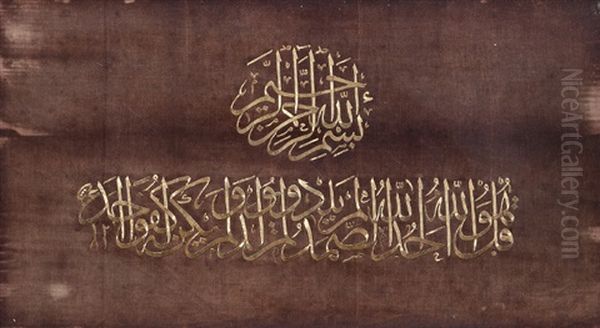 بسم الله الرحمن الرحيم
قل هو الله احد الله الصمد لم يلد ولم يولد ولم يكن له كفوا احد
NiceArtGallery.com